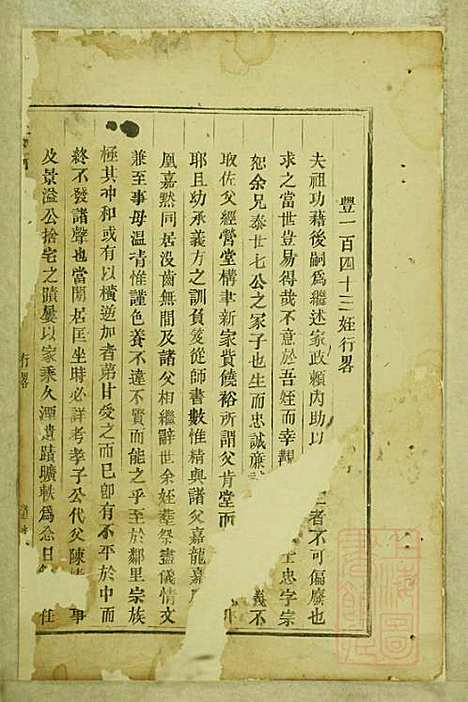 豐一百四十三姪行畧
夫祖功藉後嗣爲繼述家政賴內助以者不可偏廢也
求之當世豈易得哉不意於吾姪而幸觀忠字宗
恕余兄泰世七公之冢子也生而忠誠廉義不
取佐父經營堂構聿新家貲饒裕所謂父肯堂而
耶且幼承義方之訓負笈從師書數惟精與諸父嘉龍嘉
凰嘉黙同居没齒無間及諸父相繼辭世余姪葬祭盡儀情文
兼至事母温凊惟謹色養不違不質而能之乎至於鄰里宗族
極其冲和或有以橫逆加者第甘受之而已卽有不平於中而
終不發諸聲也當閒居匡坐時必詳考孝子公代父陳情事
及景溢公捨宅之蹟屢以家乘久湮遺蹟曠軼爲念日任
行畧